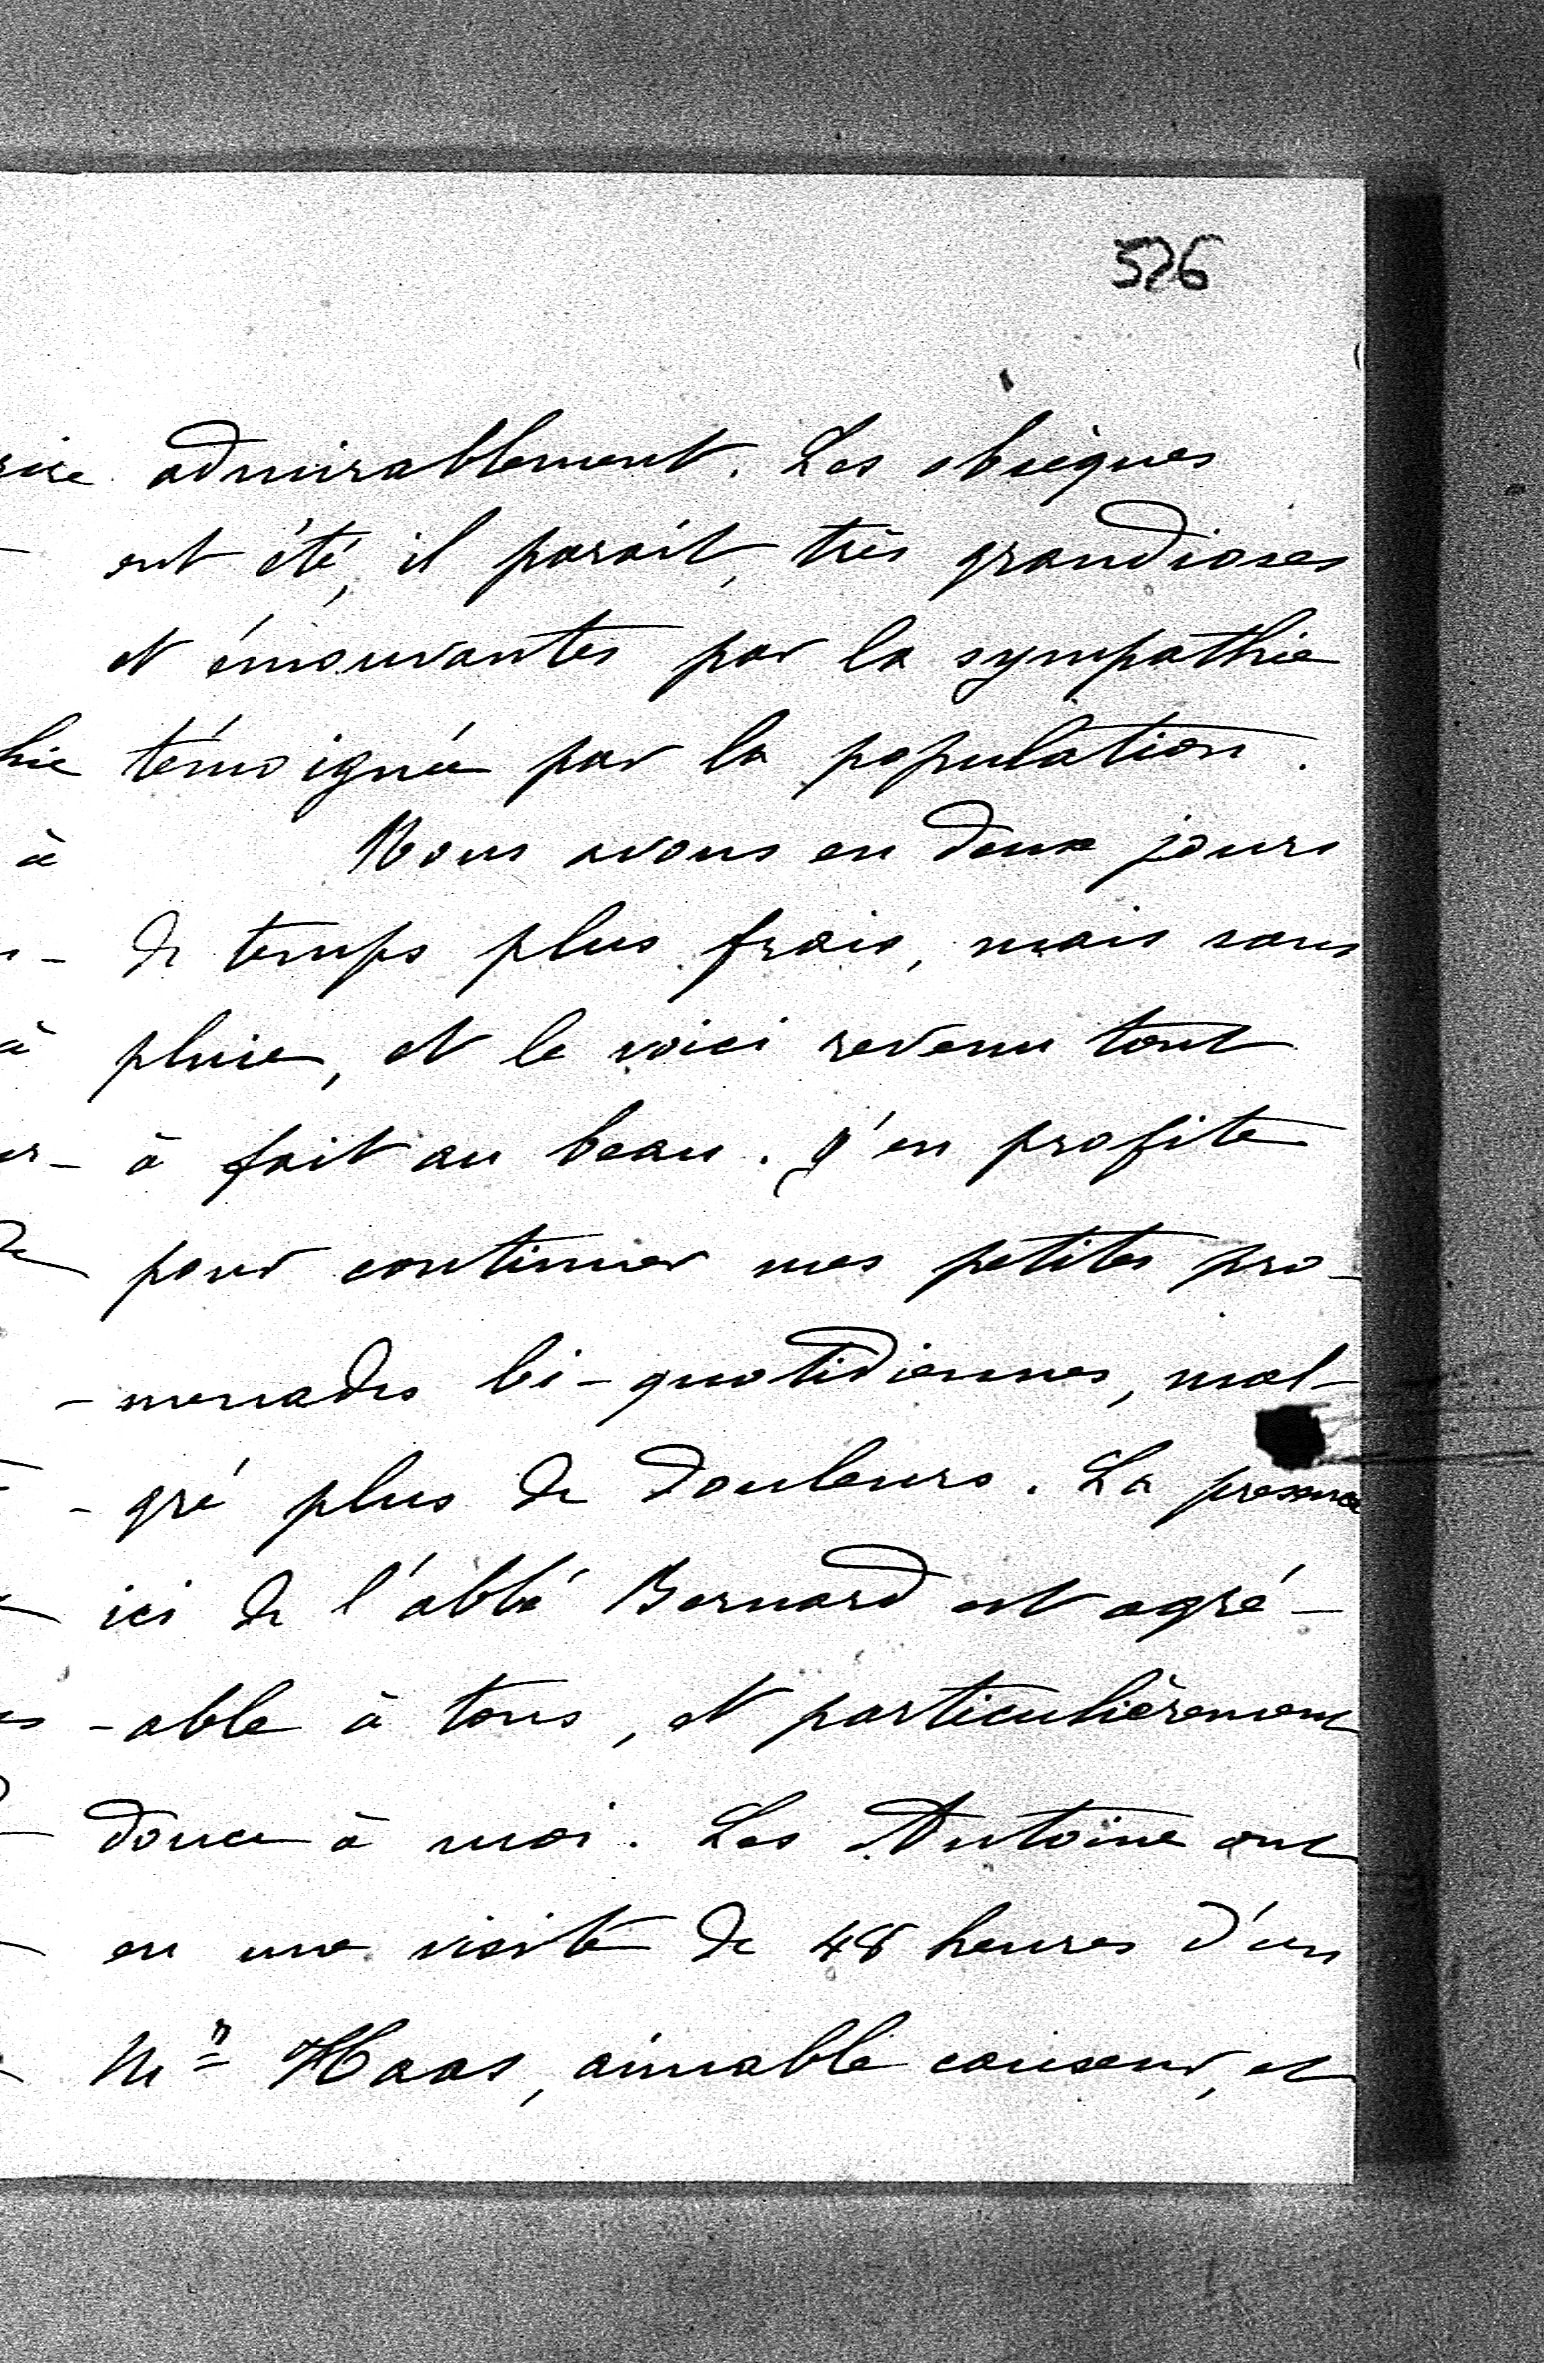 526
admirablement. Les obsèques
ont été, il paraît, très grandioses
et émouvantes par la sympathie
témoignée par la population.
Nous avons eu deux jours
de temps plus frais, mais sans
pluie, et le voici revenu tout
à fait au beau. J'en profite
pour continuer mes petites pro-
-menades bi-quotidiennes, mal-
-gré plus de douleurs. La présence
ici de l'abbé Bernard est agré-
-able à tous, et particulièrement
douce à moi. Les Antoine ont
eu une visite de 48 heures d'un
Mr Haas, aimable causeur, et